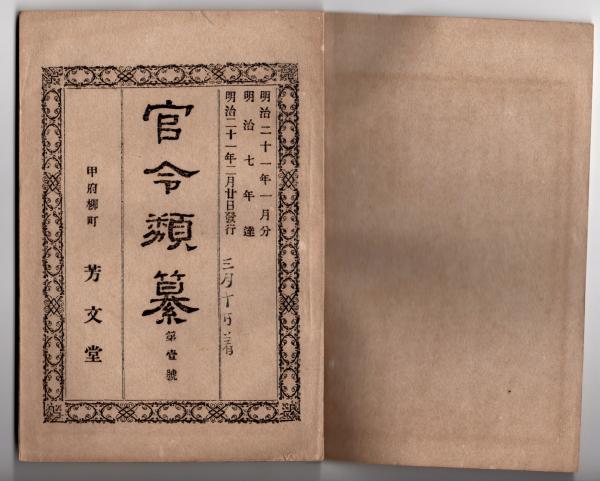 明治二十一年一月分
明治七年達
明治二十一年二月廿日發行
三月十日
官令類纂
第壹號
甲府柳町
芳文堂